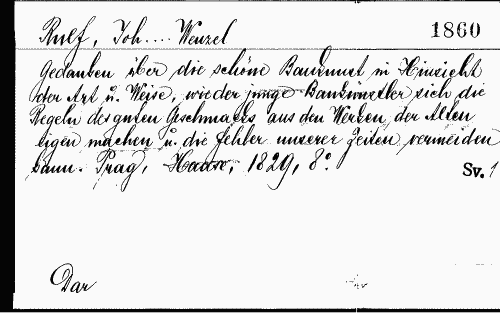 Rulf, Joh.... Wenzel 1860
Gedanken über die schöne Baukunst in Hinsicht
der Art u. Weise, wie der junge Baukünstler sich die
Regeln des guten Geschmacks aus den Werken der Alten
eigen machen u. die Fehler unserer Zeiten vermeiden
kann. Prag, Haase, 1829, 8°.
Sv. 1
Dar